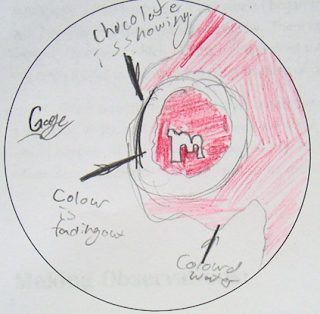 Chocolate
is showing
Gage
m
Colour
is
fadingout
Colourd
water
Making Observa